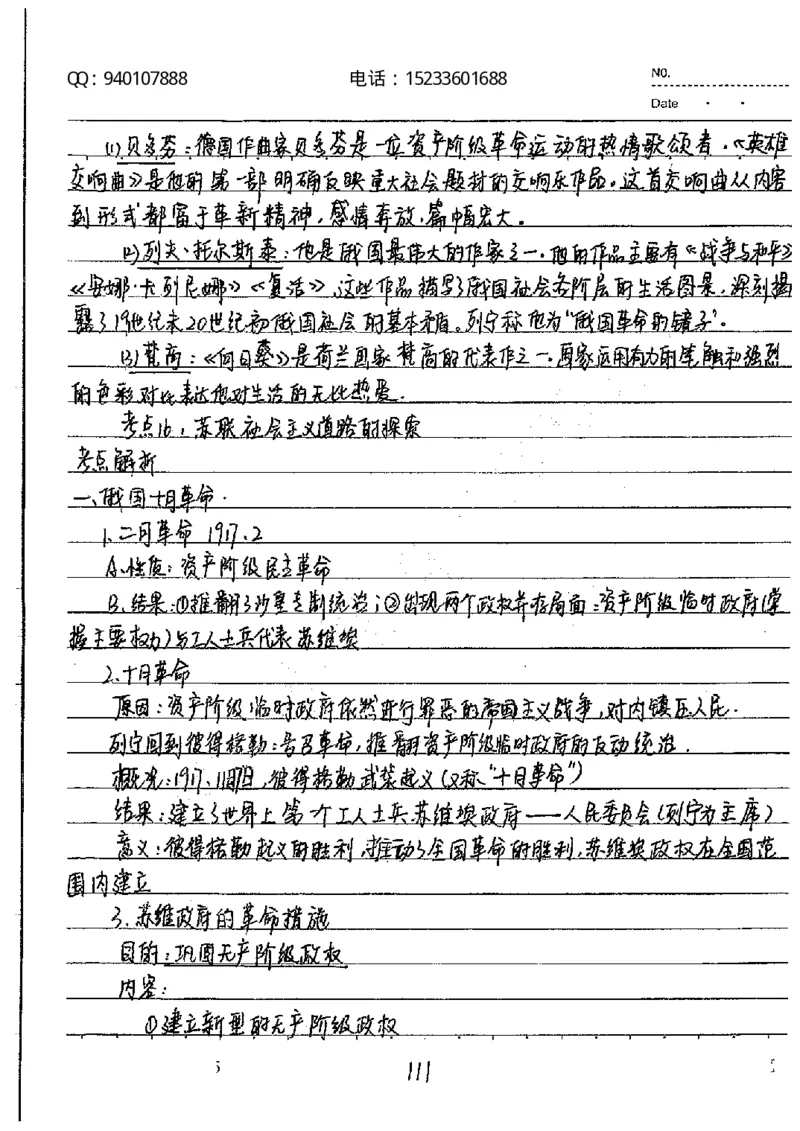 QQ：940107888 电话：15233601688 NO.
Date · ·
(1)贝多芬：德国作曲家贝多芬是一位资产阶级革命运动的热情歌颂者，《英雄
交响曲》是他的第一部明确反映重大社会题材的交响乐作品。这首交响曲从内容
到形式都富于革新精神，感情奔放，篇幅宏大。
(2)列夫·托尔斯泰：他是俄国最伟大的作家之一，他的作品主要有《战争与和平》
《安娜·卡列尼娜》《复活》，这些作品描写了俄国社会各阶层的生活图景，深刻揭
露了19世纪末20世纪初俄国社会的基本矛盾。列宁称他为“俄国革命的镜子”。
(3)梵高：《向日葵》是荷兰画家梵高的代表作之一，画家运用有力的笔触和强烈
的色彩对比表达他对生活的无比热爱.
考点16：苏联社会主义道路的探索
考点解析
一、俄国十月革命.
1.二月革命 1917.2
A.性质：资产阶级民主革命
B.结果：①推翻了沙皇专制统治；②出现两个政权并存局面：资产阶级临时政府(掌
握主要权力)与工人士兵代表苏维埃
2.十月革命
原因：资产阶级临时政府依然进行罪恶的帝国主义战争，对内镇压人民.
列宁回到彼得格勒：号召革命，推翻资产阶级临时政府的反动统治.
概况：1917.11月7日，彼得格勒武装起义(又称“十月革命”)
结果：建立了世界上第一个工人士兵苏维埃政府——人民委员会(列宁为主席)
意义：彼得格勒起义的胜利，推动了全国革命的胜利，苏维埃政权在全国范
围内建立
3.苏维政府的革命措施
目的：巩固无产阶级政权
内容：
①建立新型的无产阶级政权
111